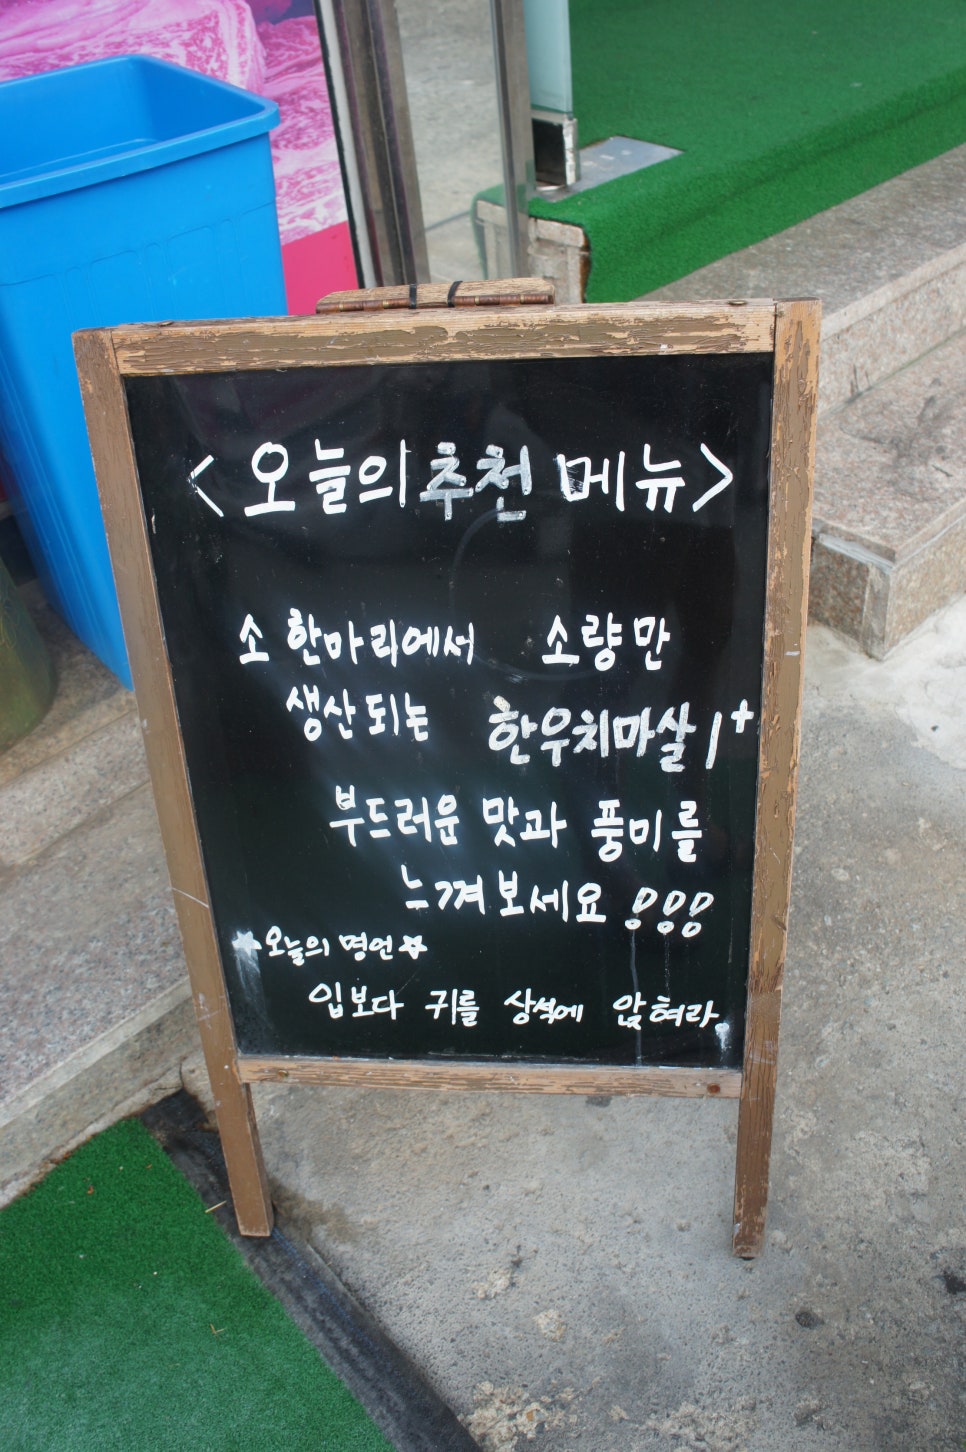 <오늘의 추천 메뉴>
소 한마리에서 소량만
생산되는 한우치마살 1+
부드러운 맛과 풍미를
느껴보세요 !!!
☆오늘의 명언☆
입보다 귀를 상석에 앉혀라.